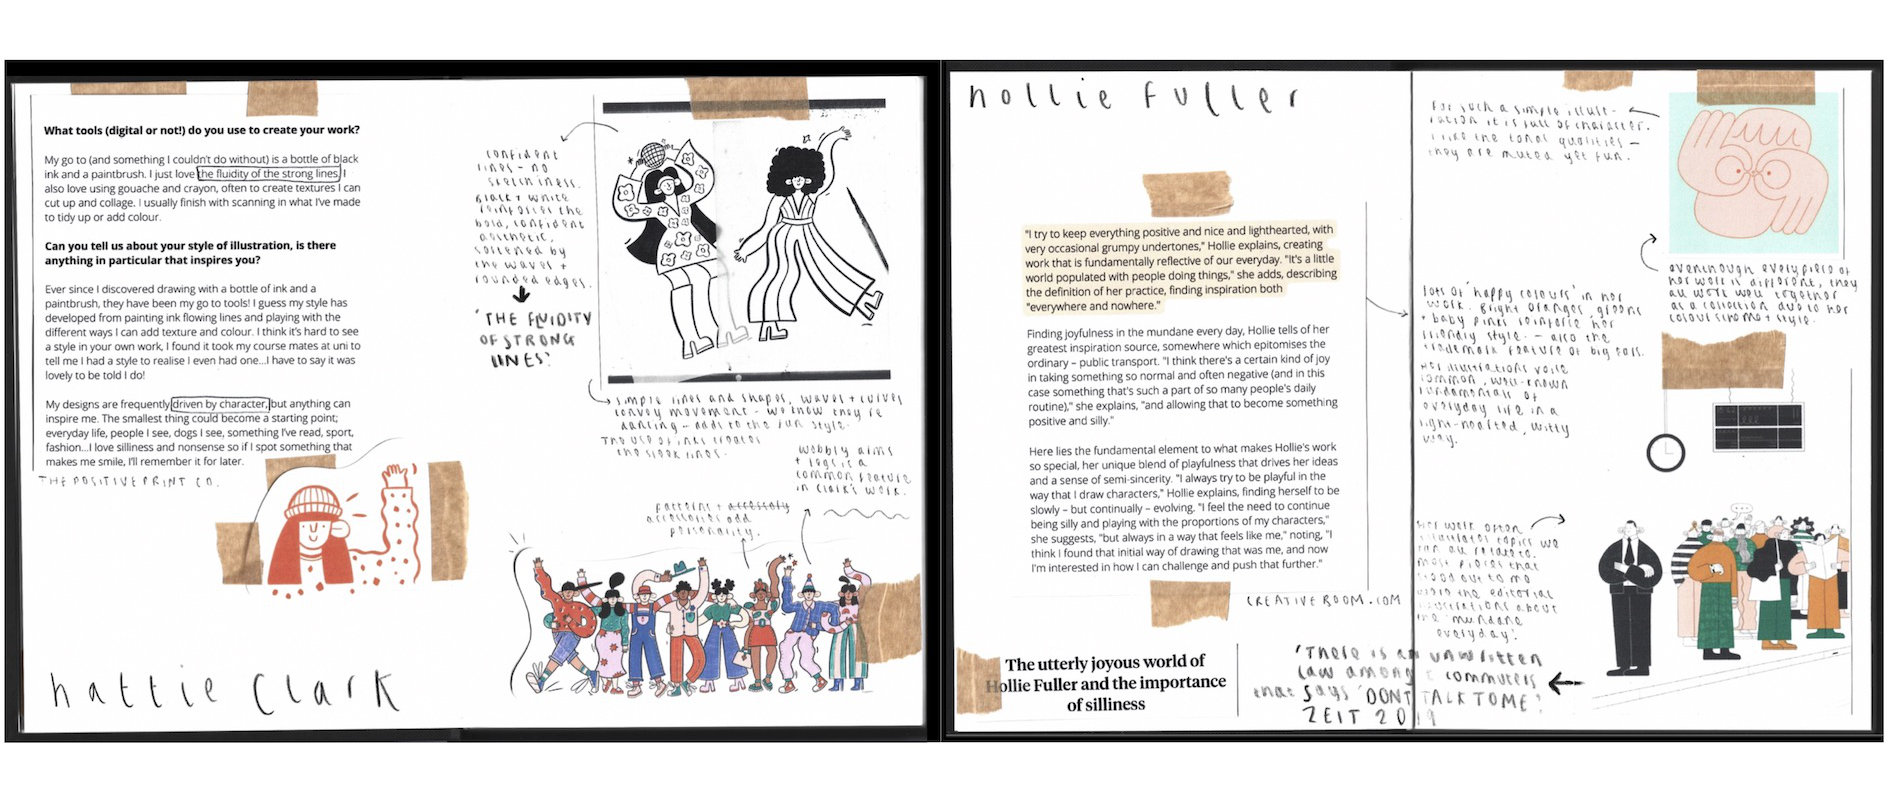 What tools (digital or not!) do you use to create your work?
My go to (and something I couldn't do without) is a bottle of black
ink and a paintbrush. I just love the fluidity of the strong lines. I
also love using gouache and crayon, often to create textures I can
cut up and collage. I usually finish with scanning in what I've made
to tidy up or add colour.
Can you tell us about your style of illustration, is there
anything in particular that inspires you?
Ever since I discovered drawing with a bottle of ink and a
paintbrush, they have been my go to tools! I guess my style has
developed from painting ink flowing lines and playing with the
different ways I can add texture and colour. I think it's hard to see
a style in your own work, I found it took my course mates at uni to
tell me I had a style to realise I even had one...I have to say it was
lovely to be told I do!
My designs are frequently driven by character, but anything can
inspire me. The smallest thing could become a starting point;
everyday life, people I see, dogs I see, something I've read, sport,
fashion...I love silliness and nonsense so if I spot something that
makes me smile, I'll remember it for later.
THE POSITIVE PRINT CO.
hattie Clark
confident
lines - no
sketchiness.
Black + white
reinforces the
bold, confident
aesthetic,
softened by
the waves +
rounded edges.
'THE FLUIDITY
OF STRONG
LINES'
simple lines and shapes, waves + curves
convey movement - we know they're
dancing - adds to the fun style.
The use of inks creates
the sleek lines.
wobbly arms
+ legs is a
common feature
in Clark's work.
patterns + accessory
accessories add
personality.
hollie fuller
"I try to keep everything positive and nice and lighthearted, with
very occasional grumpy undertones," Hollie explains, creating
work that is fundamentally reflective of our everyday. "It's a little
world populated with people doing things," she adds, describing
the definition of her practice, finding inspiration both
"everywhere and nowhere."
Finding joyfulness in the mundane every day, Hollie tells of her
greatest inspiration source, somewhere which epitomises the
ordinary – public transport. "I think there's a certain kind of joy
in taking something so normal and often negative (and in this
case something that's such a part of so many people's daily
routine)," she explains, "and allowing that to become something
positive and silly."
Here lies the fundamental element to what makes Hollie's work
so special, her unique blend of playfulness that drives her ideas
and a sense of semi-sincerity. "I always try to be playful in the
way that I draw characters," Hollie explains, finding herself to be
slowly – but continually – evolving. "I feel the need to continue
being silly and playing with the proportions of my characters,"
she suggests, "but always in a way that feels like me," noting, "I
think I found that initial way of drawing that was me, and now
I'm interested in how I can challenge and push that further."
CREATIVEBOOM.COM
The utterly joyous world of
Hollie Fuller and the importance
of silliness
'There is an unwritten
law among commuters
that says 'DONT TALK TO ME'
ZEIT 2019
For such a simple illust-
ration it is full of character.
I like the tonal qualities -
they are muted yet fun.
eventhough every piece of
her work is different, they
all work well together
as a collection due to her
colour scheme + style.
lots of 'happy colours' in her
work. Bright oranges, greens
+ baby pinks reinforce her
friendly style. - also the
trademark feature of big ears.
Her illustrations voice
common, well-known
fundamentals of
everyday life in a
light-hearted, witty
way.
Her work often
illustrates topics we
can all relate to.
most pieces that
stood out to me
were the editorial
illustrations about
the 'mundane
everyday'.